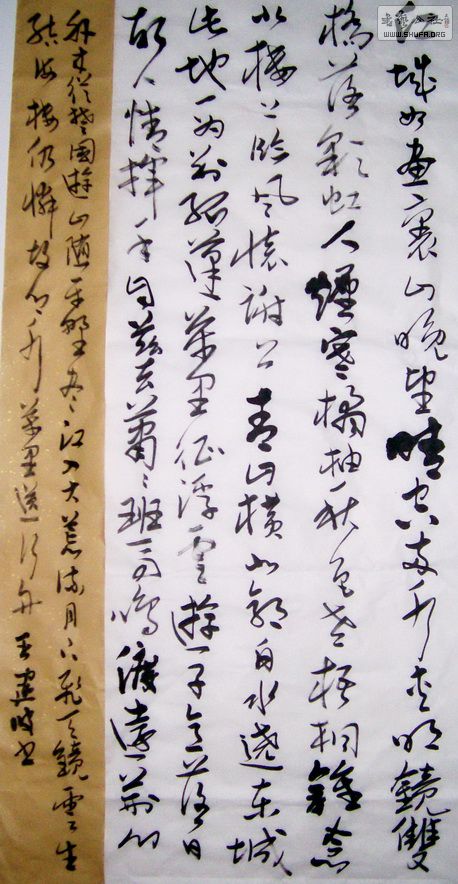 江城如畫裏山晚望晴空兩水夾明鏡雙
橋落彩虹人煙寒橘柚秋色老梧桐誰念
北樓上臨風懷謝公青山橫北郭白水遶東城
此地一為別孤蓬萬里征浮雲遊子意落日
故人情揮手自茲去蕭々班馬鳴渡遠荊門
外來從楚國遊山隨平野盡江入大荒流月下飛天鏡雲生
結海樓仍憐故鄉水萬里送行舟 王建书
WWW.SHUFA.ORG